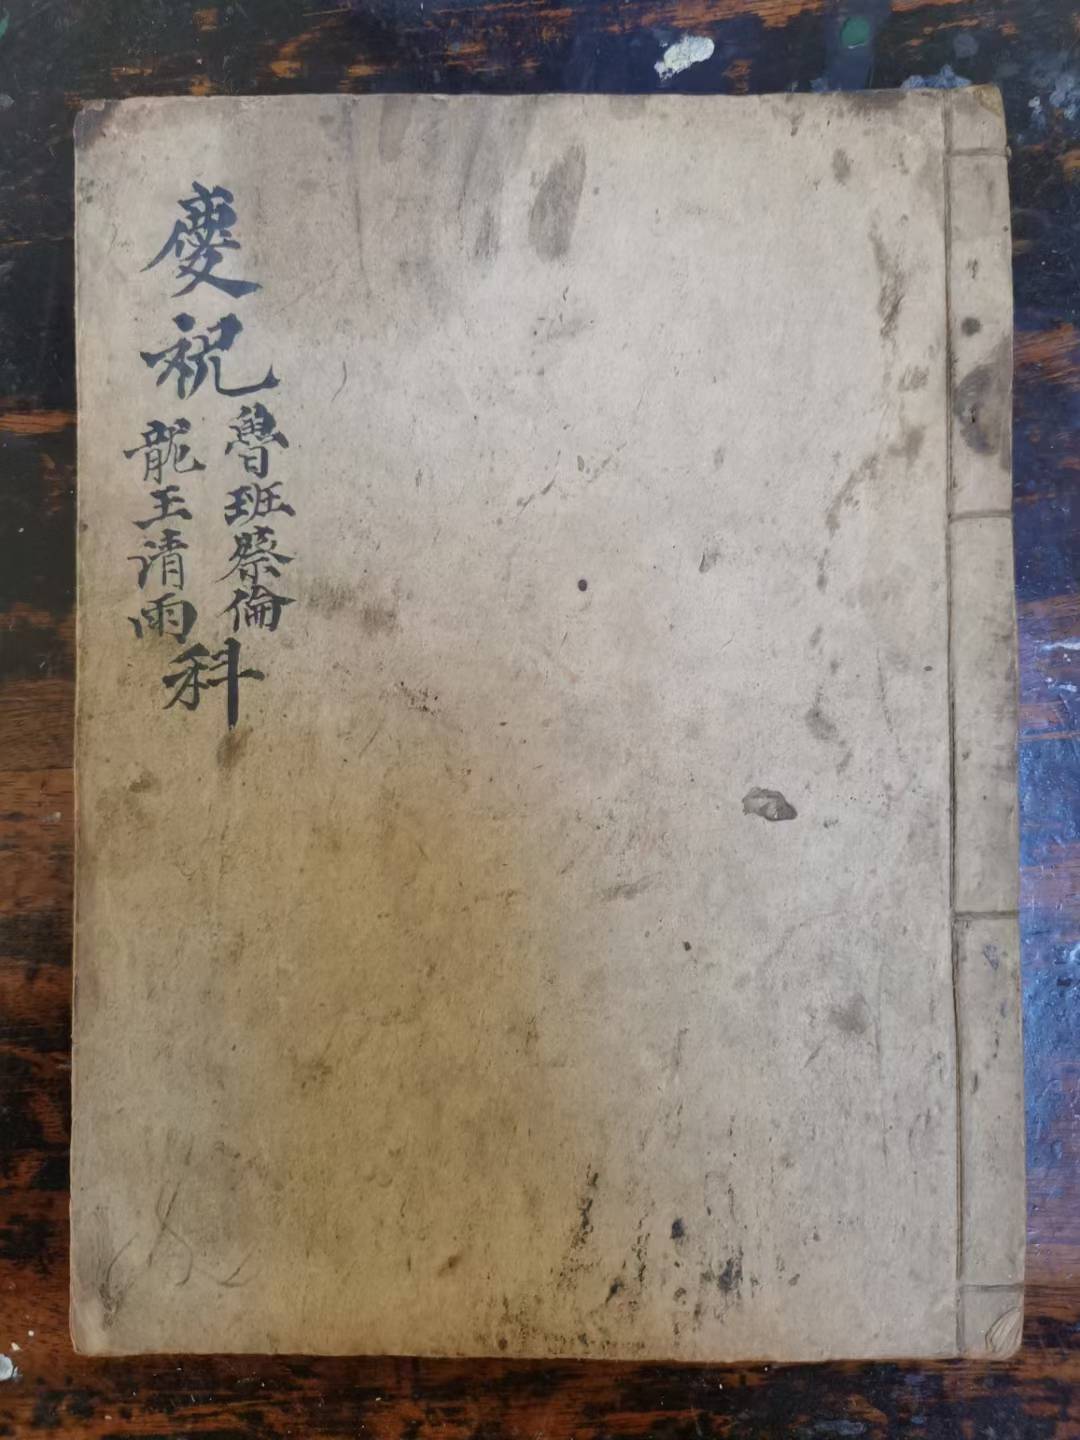 慶祝
魯班蔡倫
龍王清雨
科